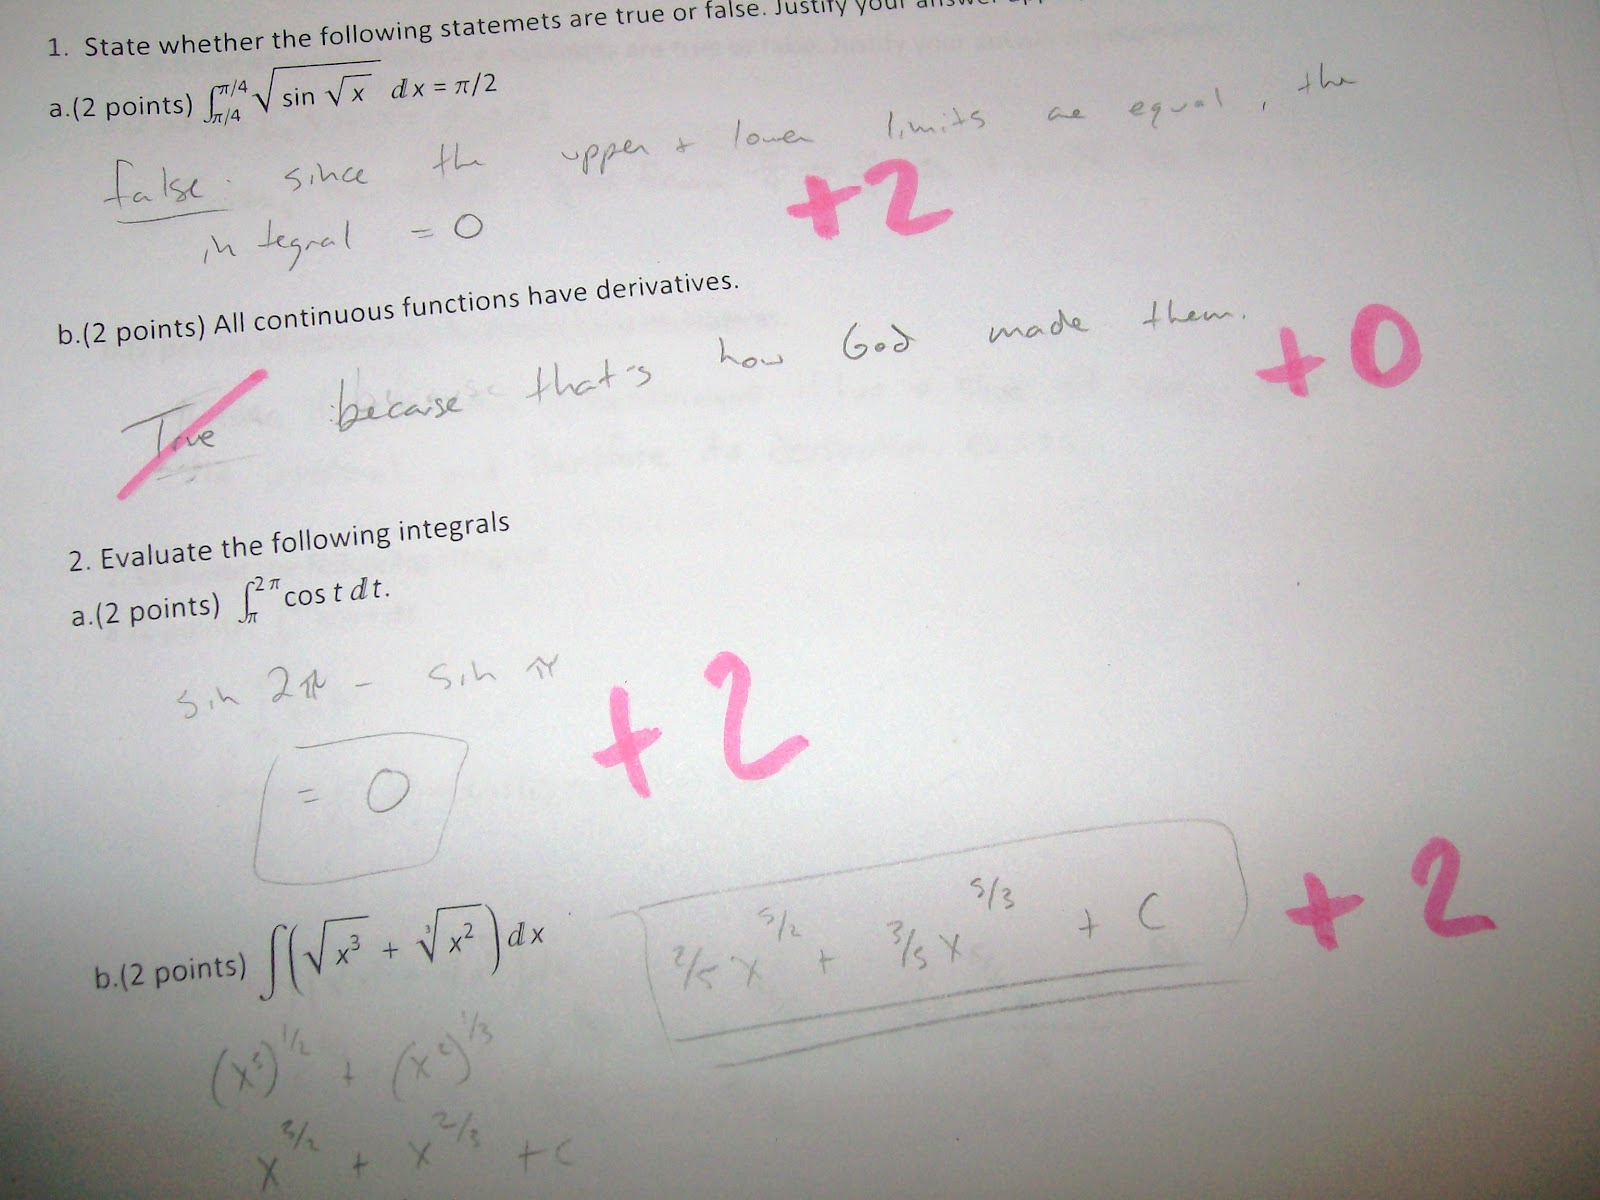 1. State whether the following statemets are true or false. Justify your answer
a.(2 points) ∫_{π/4}^{π/4} √(sin √x) dx = π/2
false: since the upper + lower limits are equal, the
integral = 0
+2
b.(2 points) All continuous functions have derivatives.
True because that's how God made them.
+0
2. Evaluate the following integrals
a.(2 points) ∫_π^{2π} cos t dt.
sin 2π - sin π
= 0
+2
b.(2 points) ∫(√(x^3) + ∛(x^2)) dx
2/5 x^{5/2} + 3/5 x^{5/3} + C
+2
(x^3)^{1/2} + (x^2)^{1/3}
x^{3/2} + x^{2/3} + C